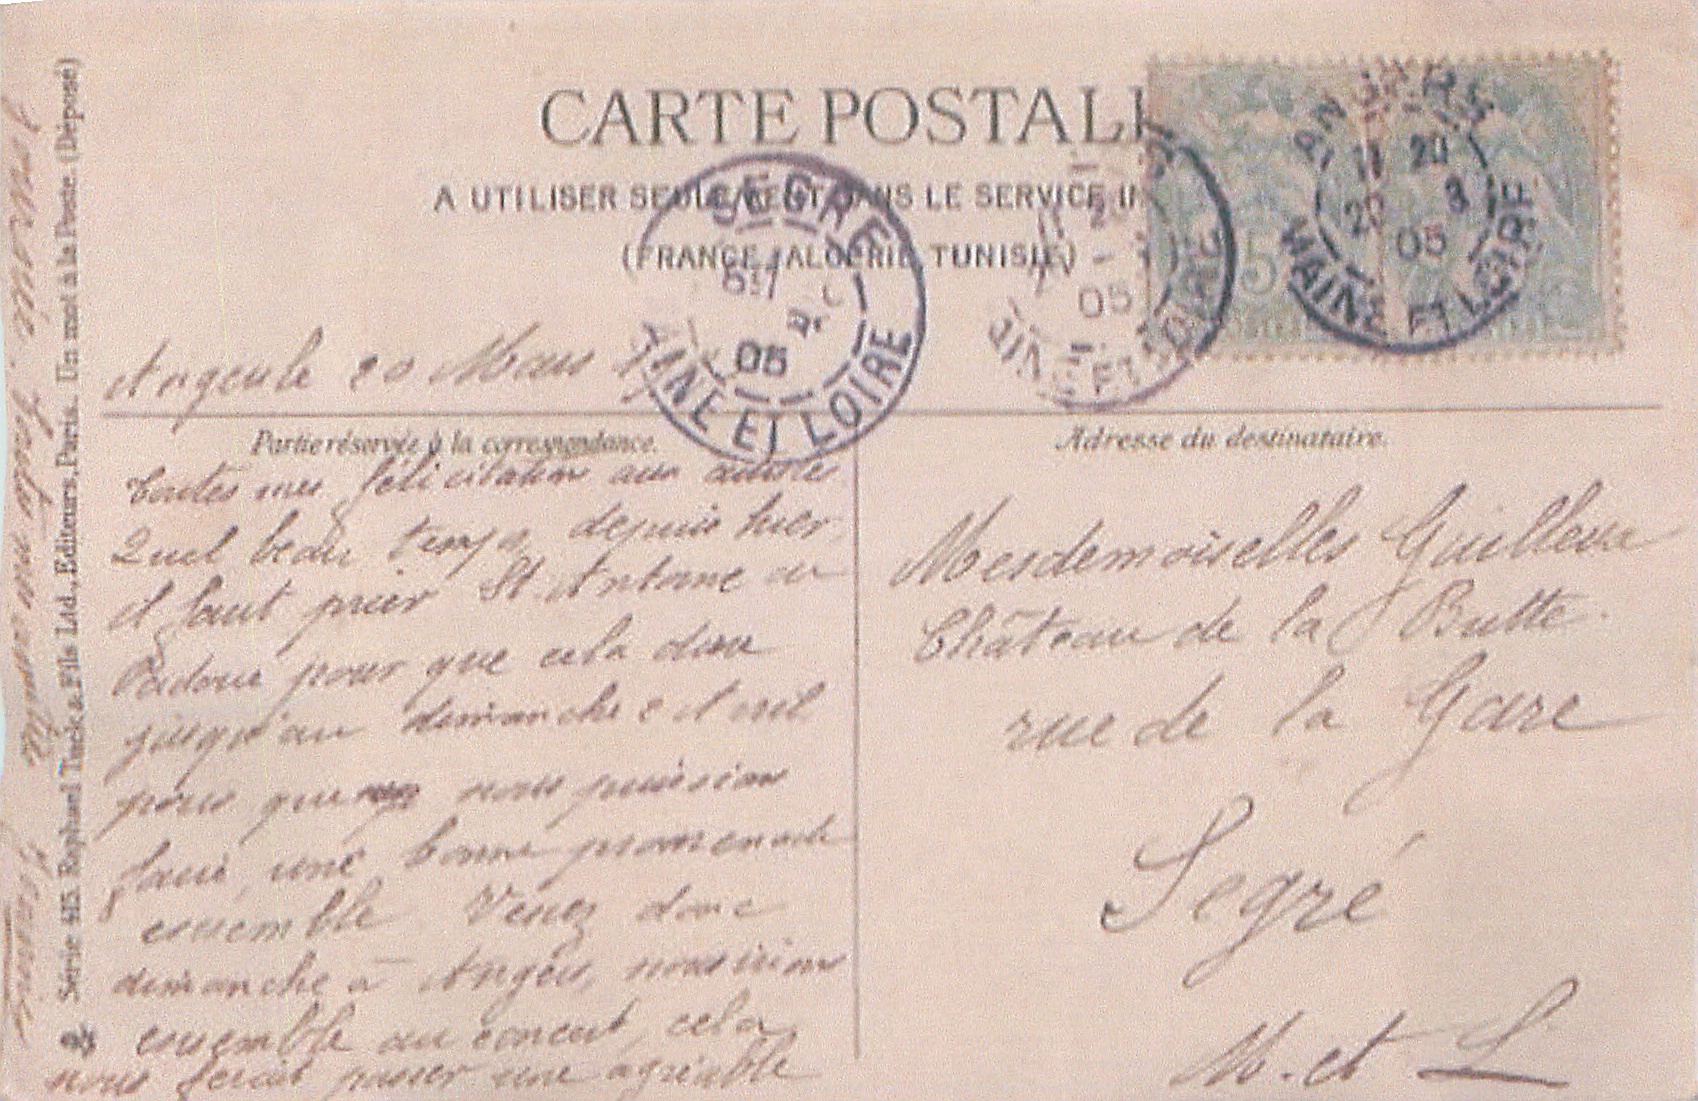 CARTE POSTAL
A UTILISER SEULEMENT DANS LE SERVICE IN
(FRANCE, ALGERIE, TUNISIE)
SEGRE
05
MAINE ET LOIRE
05
MAINE ET LOIRE
ANGERS
11 20
20 3
05
MAINE ET LOIRE
5
20 Mars
Partie réservée à la correspondance.
Toutes mes félicitations aux artistes
Quel beau temps, depuis hier,
il faut prier St. Antoine de
Padoue pour que cela dure
jusqu'au dimanche 2 Avril
pour que nous puissions
faire, une bonne promenade
ensemble Venez donc
dimanche à Angers, nous irions
ensemble au concert, cela
nous ferait passer une agréable
Adresse du destinataire.
Mesdemoiselles Guilleux
Château de la Butte.
rue de la Gare
Segré
M. et L
Série 415. Raphael Tuck & Fils Ltd., Editeurs, Paris. Un mot à la Poste. (Déposé)